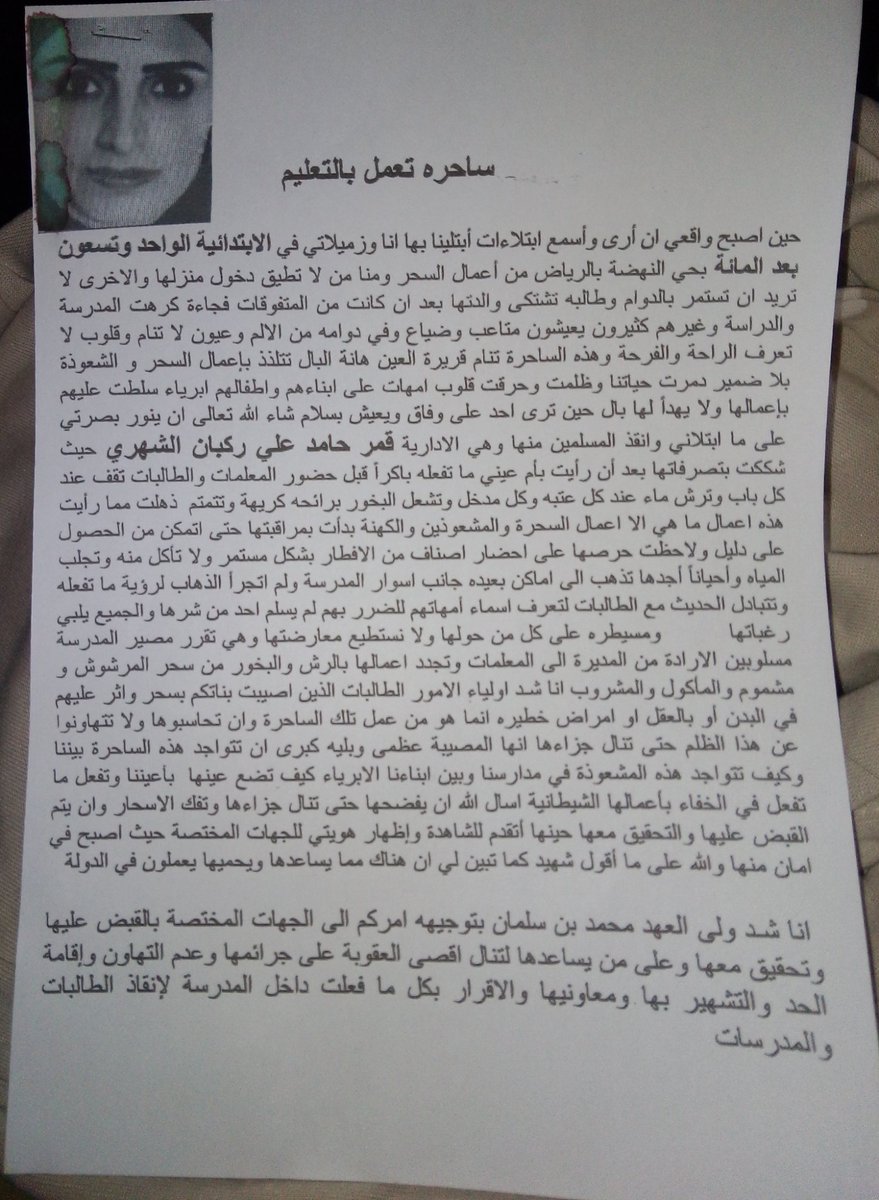 ساحره تعمل بالتعليم
حين اصبح واقعي ان أرى وأسمع ابتلاءات أبتلينا بها انا وزميلاتي في الابتدائية الواحد وتسعون
بعد المائة بحي النهضة بالرياض من أعمال السحر ومنا من لا تطيق دخول منزلها والاخرى لا
تريد ان تستمر بالدوام وطالبه تشتكى والدتها بعد ان كانت من المتفوقات فجاءة كرهت المدرسة
والدراسة وغيرهم كثيرون يعيشون متاعب وضياع وفي دوامه من الالم وعيون لا تنام وقلوب لا
تعرف الراحة والفرحة وهذه الساحرة تنام قريرة العين هانة البال تتلذذ بإعمال السحر و الشعوذة
بلا ضمير دمرت حياتنا وظلمت وحرقت قلوب امهات على ابناءهم واطفالهم ابرياء سلطت عليهم
بإعمالها ولا يهدأ لها بال حين ترى احد على وفاق ويعيش بسلام شاء الله تعالى ان ينور بصرتي
على ما ابتلاني وانقذ المسلمين منها وهي الادارية قمر حامد علي ركبان الشهري حيث
شككت بتصرفاتها بعد أن رأيت بأم عيني ما تفعله باكراً قبل حضور المعلمات و الطالبات تقف عند
كل باب وترش ماء عند كل عتبه وكل مدخل وتشعل البخور برائحه كريهة وتتمتم ذهلت مما رأيت
هذه اعمال ما هي الا اعمال السحرة و المشعوذين و الكهنة بدأت بمراقبتها حتى اتمكن من الحصول
على دليل ولاحظت حرصها على احضار اصناف من الافطار بشكل مستمر ولا تأكل منه وتجلب
المياه وأحياناً أجدها تذهب الى اماكن بعيده جانب اسوار المدرسة ولم اتجرأ الذهاب لرؤية ما تفعله
وتتبادل الحديث مع الطالبات لتعرف اسماء أمهاتهم للضرر بهم لم يسلم احد من شرها و الجميع يلبي
رغباتها ومسيطره على كل من حولها ولا نستطيع معارضتها وهي تقرر مصير المدرسة
مسلوبين الارادة من المديرة الى المعلمات وتجدد اعمالها بالرش والبخور من سحر المرشوش و
مشموم و المأكول و المشروب انا شد اولياء الامور الطالبات الذين اصيبت بناتكم بسحر واثر عليهم
في البدن أو بالعقل او امراض خطيره انما هو من عمل تلك الساحرة وان تحاسبوها ولا تتهاونوا
عن هذا الظلم حتى تنال جزاءها انها المصيبة عظمى وبليه كبرى ان تتواجد هذه الساحرة بيننا
وكيف تتواجد هذه المشعوذة في مدارسنا وبين ابناءنا الابرياء كيف تضع عينها بأعيننا وتفعل ما
تفعل في الخفاء بأعمالها الشيطانية اسال الله ان يفضحها حتى تنال جزاءها وتفك الاسحار وان يتم
القبض عليها و التحقيق معها حينها أتقدم للشاهدة وإظهار هويتي للجهات المختصة حيث اصبح في
امان منها والله على ما أقول شهيد كما تبين لي ان هناك مما يساعدها ويحميها يعملون في الدولة
انا شد ولى العهد محمد بن سلمان بتوجيهه امركم الى الجهات المختصة بالقبض عليها
وتحقيق معها و على من يساعدها لتنال اقصى العقوبة على جرائمها وعدم التهاون وإقامة
الحد والتشهير بها ومعاونيها والاقرار بكل ما فعلت داخل المدرسة لإنقاذ الطالبات
والمدرسات